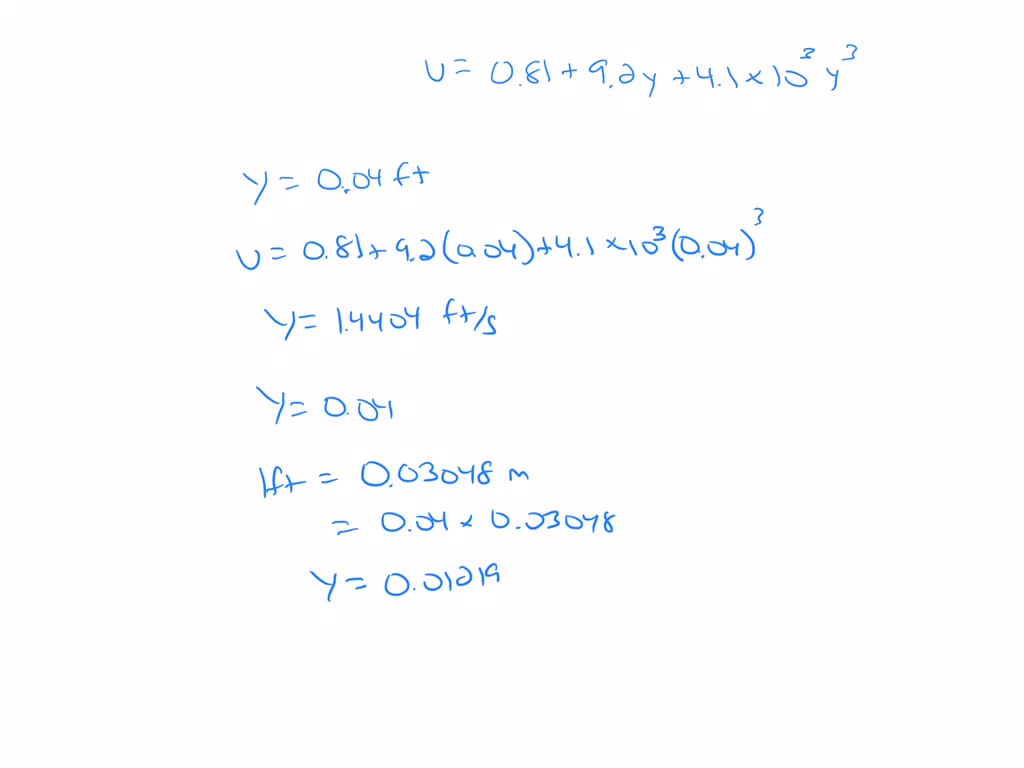 U = 0.81 + 9.2y + 4.1 × 10³ y³
y = 0.04 ft
U = 0.81 + 9.2(0.04) + 4.1 × 10³ (0.04)³
y = 1.4404 ft/s
y = 0.04
1ft = 0.03048 m
= 0.04 × 0.03048
y = 0.01219